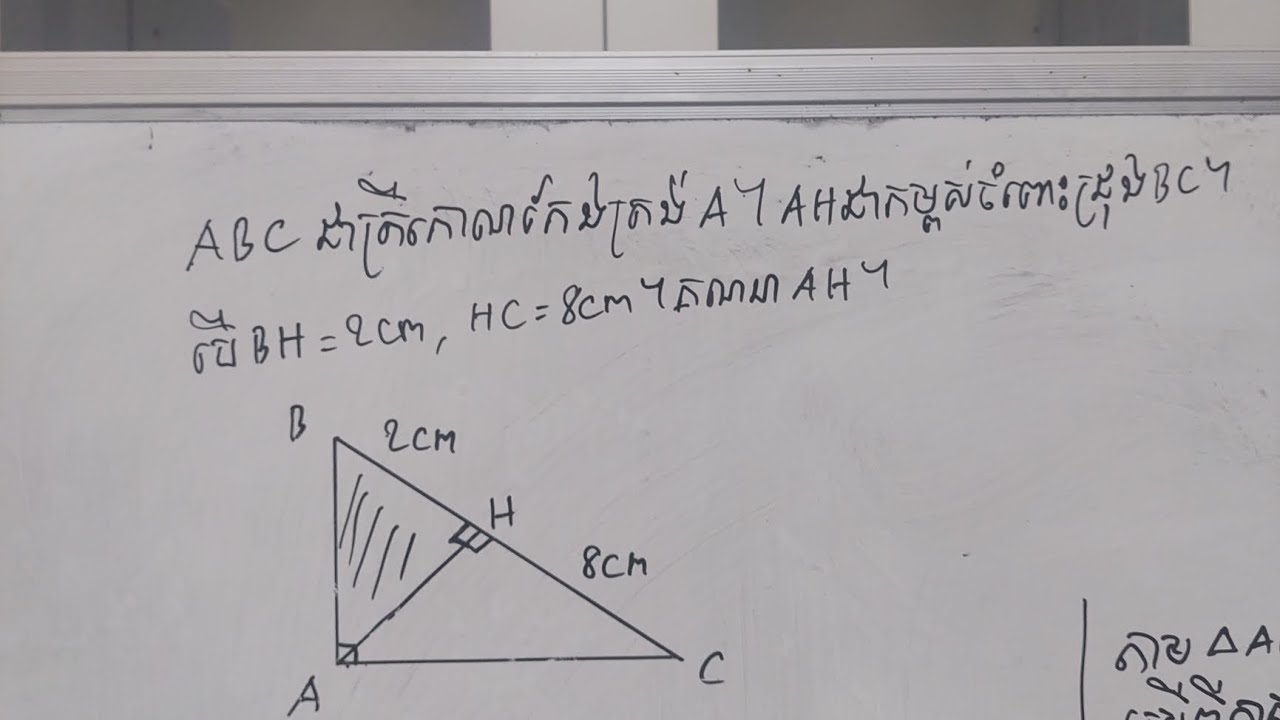 ABC ជាត្រីកោណកែងត្រង់ A។ AHជាកម្ពស់ចំពោះជ្រុងBC។
បើ BH = 2cm, HC = 8cm។ គណនា AH។
B
2cm
H
8cm
A
C
តាម ΔA